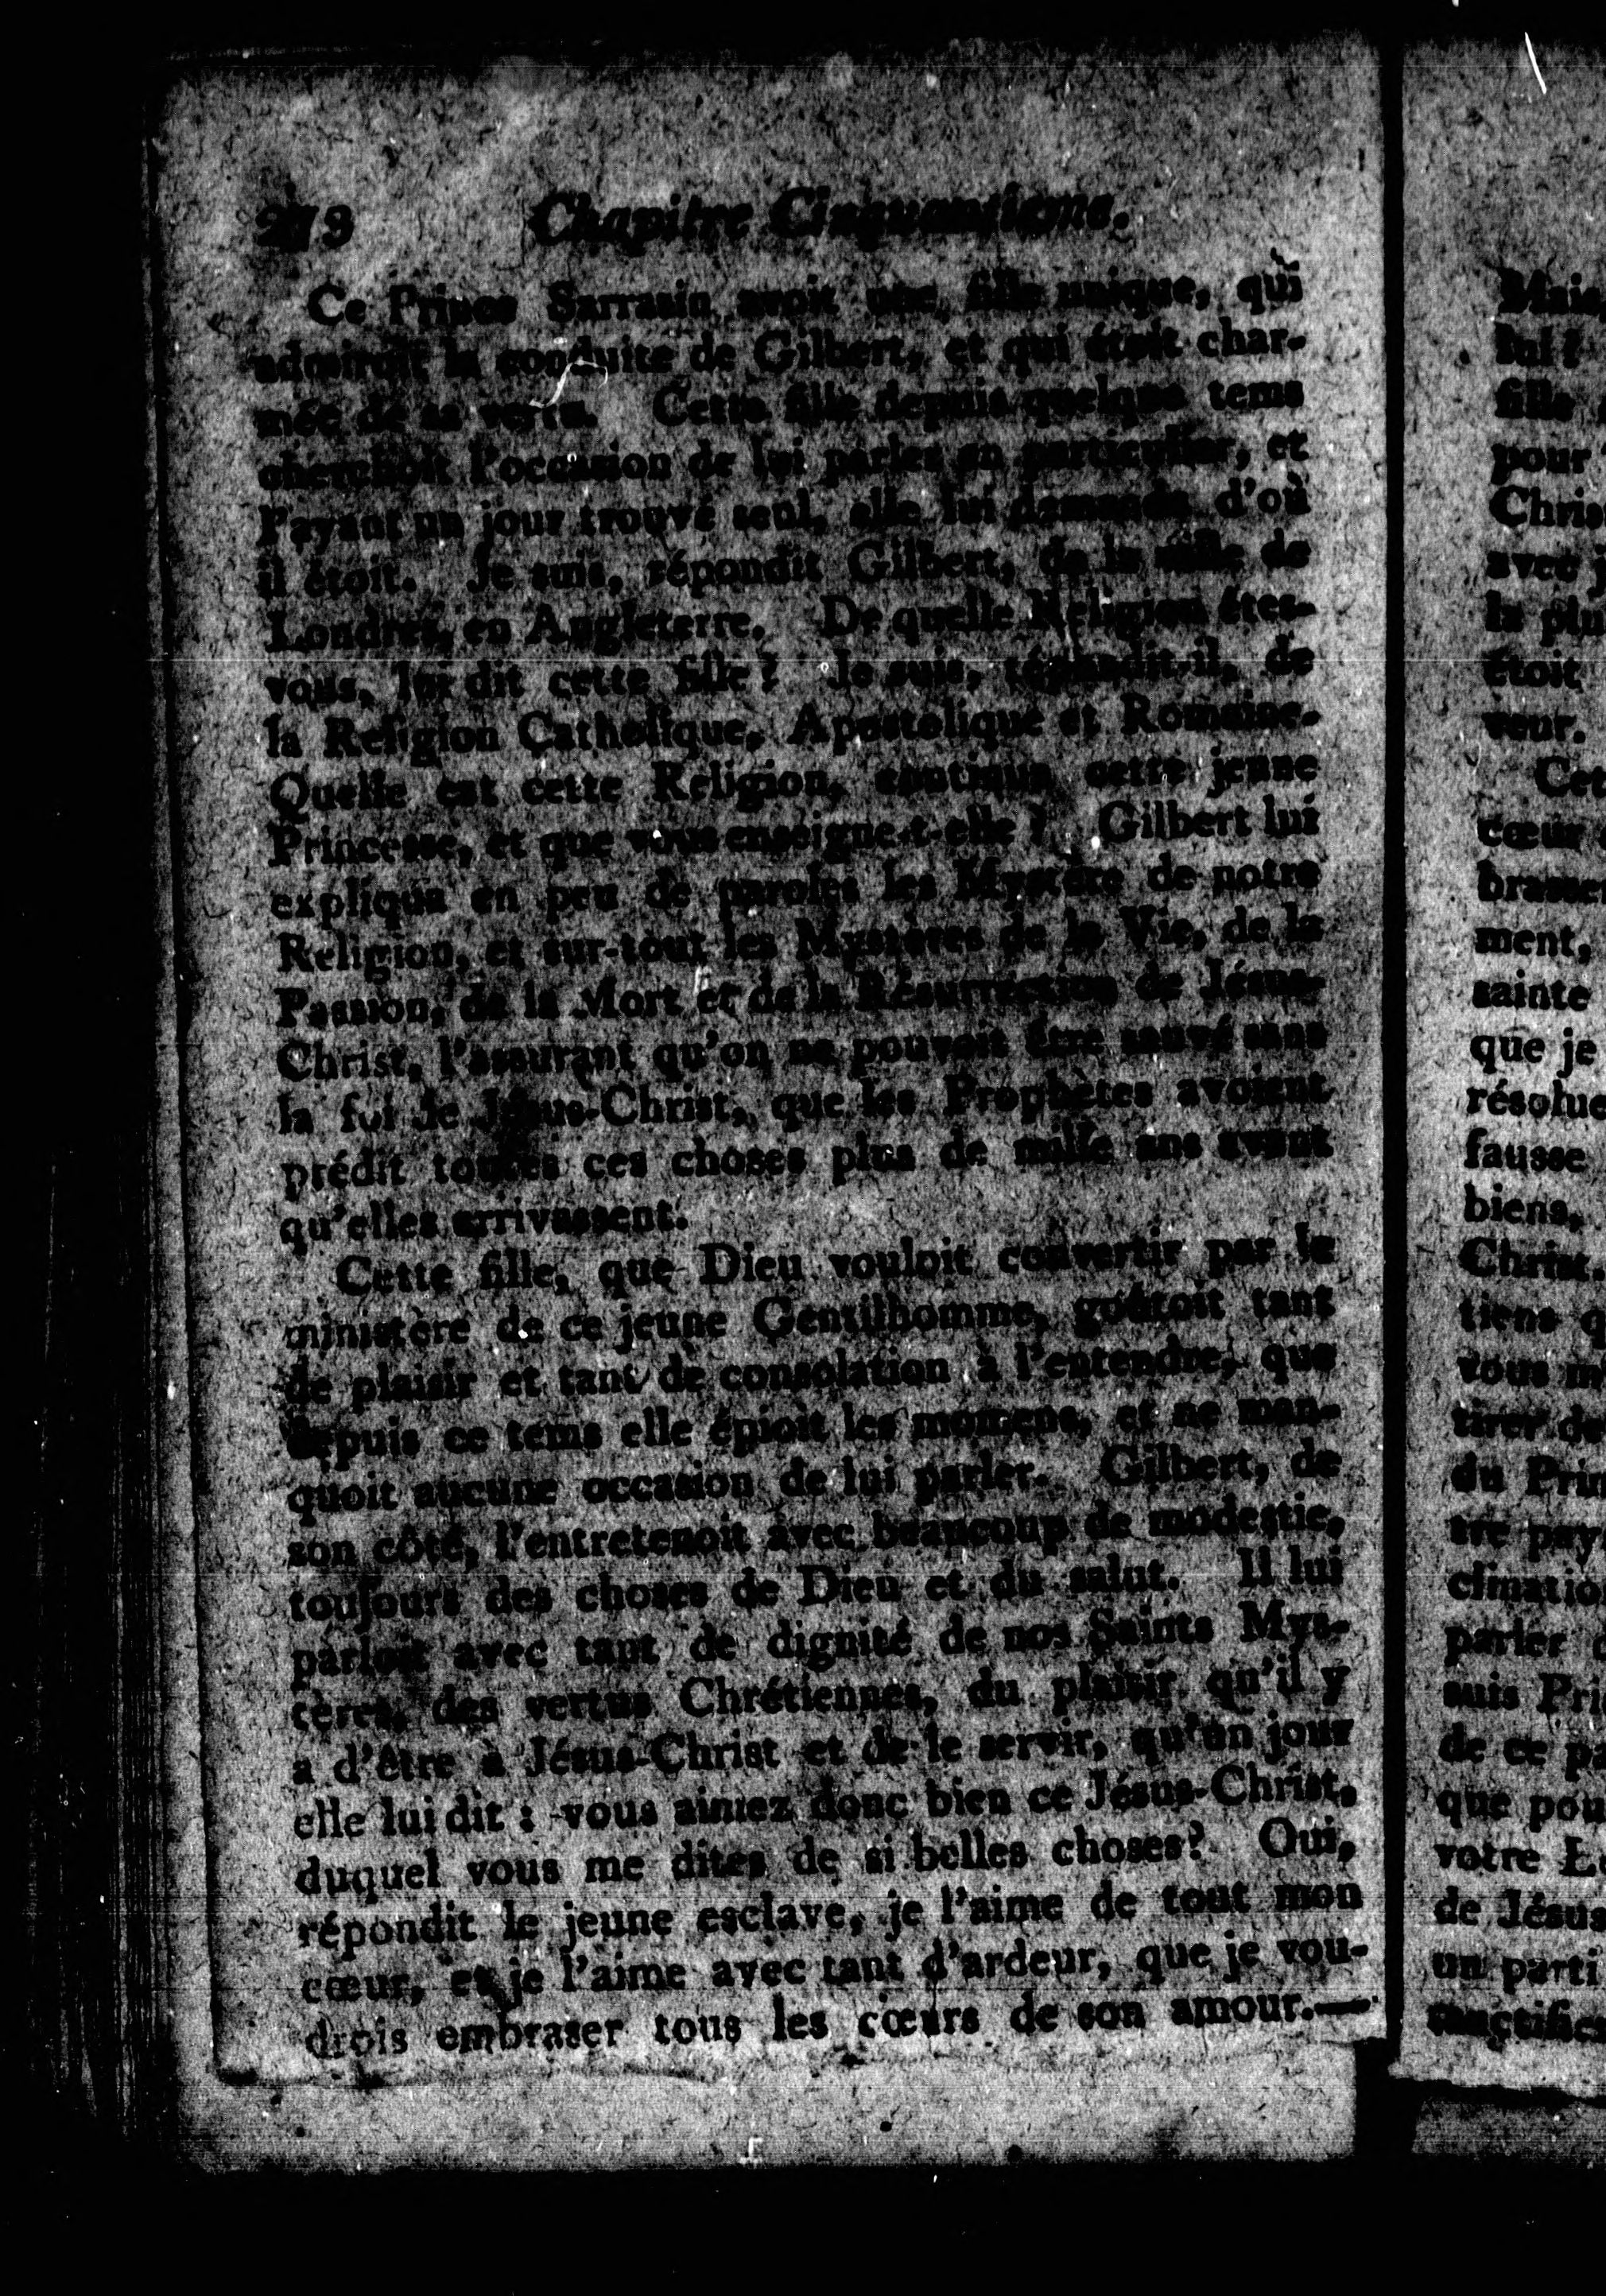 Chapitre Cinquantieme.
Ce Prince Sarrasin avoit une fille unique, qui
admiroit la conduite de Gilbert, et qui étoit char-
mée de sa vertu. Cette fille depuis quelque tems
cherchoit l'occasion de lui parler en particulier, et
l'ayant un jour trouvé seul, elle lui demanda d'où
il étoit. Je suis, répondit Gilbert, de la ville de
Londres, en Angleterre. De quelle Religion êtes-
vous, lui dit cette fille? Je suis, répondit-il, de
la Religion Catholique, Apostolique et Romaine.
Quelle est cette Religion, continua cette jeune
Princesse, et que vous enseigne-t-elle? Gilbert lui
expliqua en peu de paroles les Mystère de notre
Religion, et sur-tout les Mysteres de la Vie, de la
Passion, de la Mort et de la Résurrection de Jésus-
Christ, l'assurant qu'on ne pouvoit être sauvé sans
la foi de Jésus-Christ, que les Prophètes avoient
prédit toutes ces choses plus de mille ans avant
qu'elles arrivassent.
Cette fille, que Dieu vouloit convertir par le
ministère de ce jeune Gentilhomme, goûtoit tant
de plaisir et tant de consolation à l'entendre, que
depuis ce tems elle épioit les momens, et ne man-
quoit aucune occasion de lui parler. Gilbert, de
son côté, l'entretenoit avec beaucoup de modestie,
toujours des choses de Dieu et du salut. Il lui
parloit avec tant de dignité de nos Saints Mys-
tères, des vertus Chrétiennes, du plaisir qu'il y
a d'être à Jésus-Christ et de le servir, qu'un jour
elle lui dit : vous aimez donc bien ce Jésus-Christ,
duquel vous me dites de si belles choses? Oui,
répondit le jeune esclave, je l'aime de tout mon
cœur, et je l'aime avec tant d'ardeur, que je vou-
drois embraser tous les cœurs de son amour.—
Mais
lui?
fille
pour
Chris
avec j
la plu
étoit
veur.
Cet
cœur
brasse
ment,
sainte
que je
résolue
fausse
biens,
Christ.
tiens q
vous m
tirer de
du Prin
tre pay
climatio
parler
suis Pri
de ce pa
que pou
votre
de Jésus
un parti